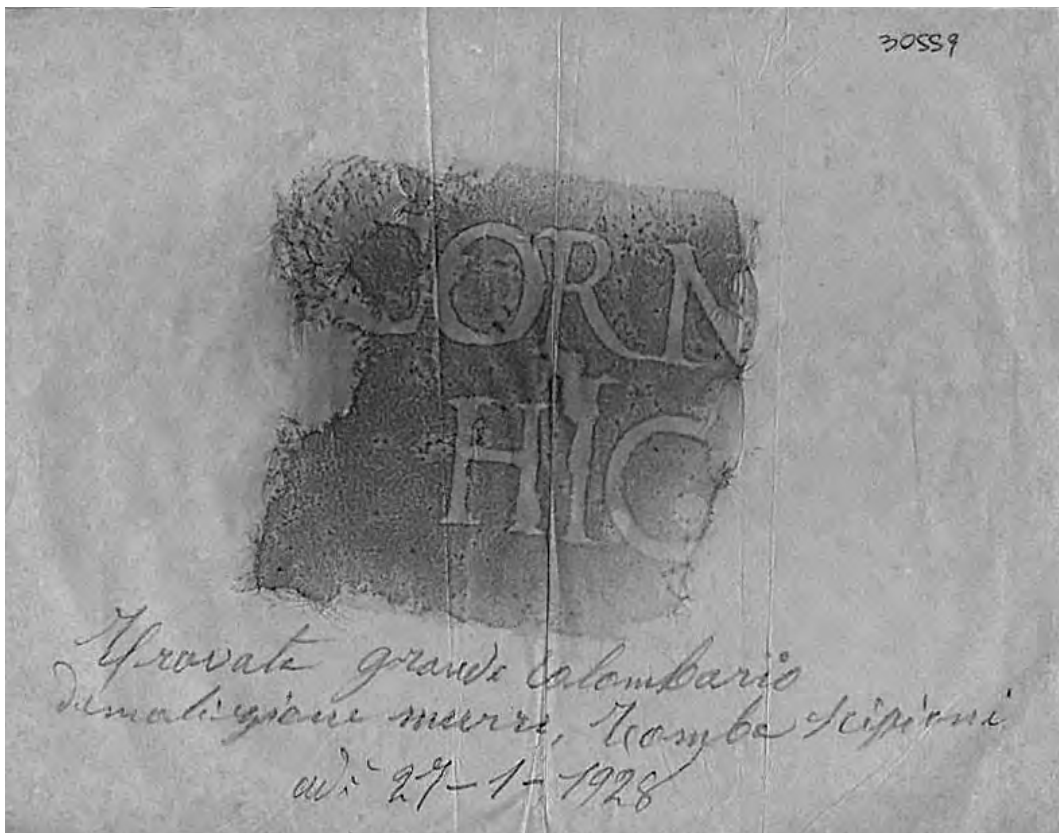 30559
CORN
HIC
Trovata grande Colombario
demolizione murri, Tomba Scipioni
adì 27-1-1928